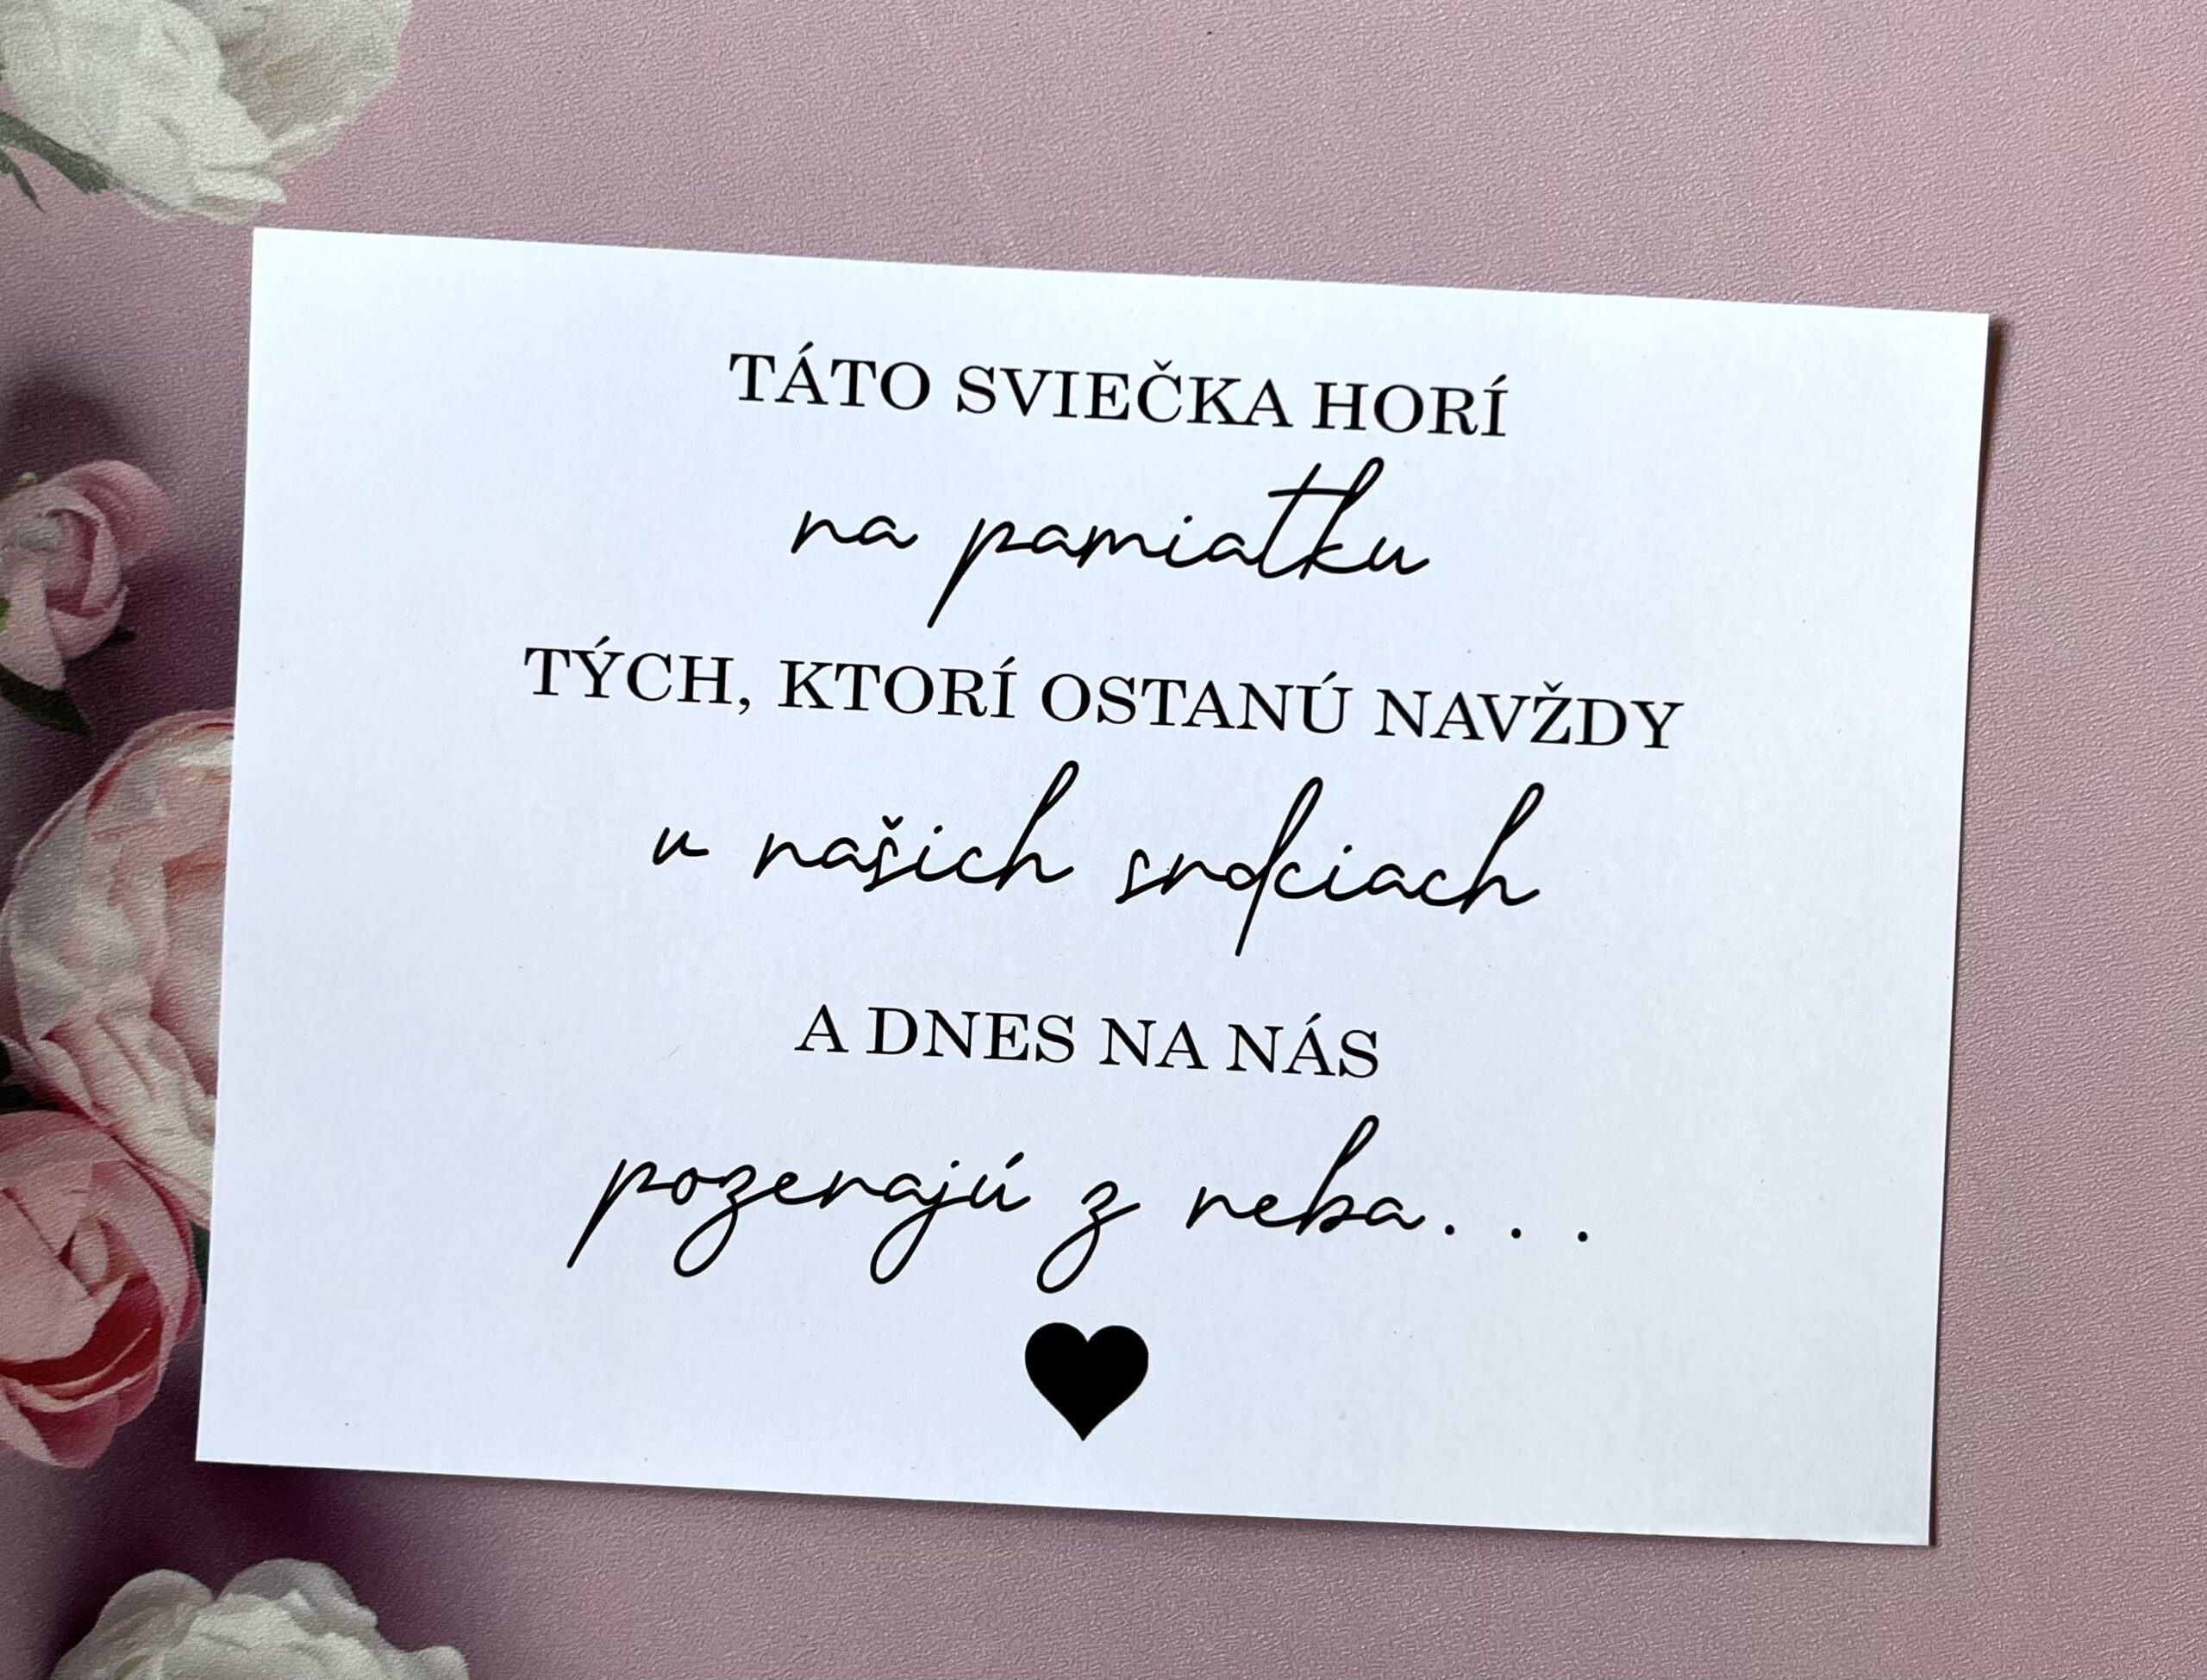 TÁTO SVIEČKA HORÍ
na pamiatku
TÝCH, KTORÍ OSTANÚ NAVŽDY
v našich srdciach
A DNES NA NÁS
pozerajú z neba. . .